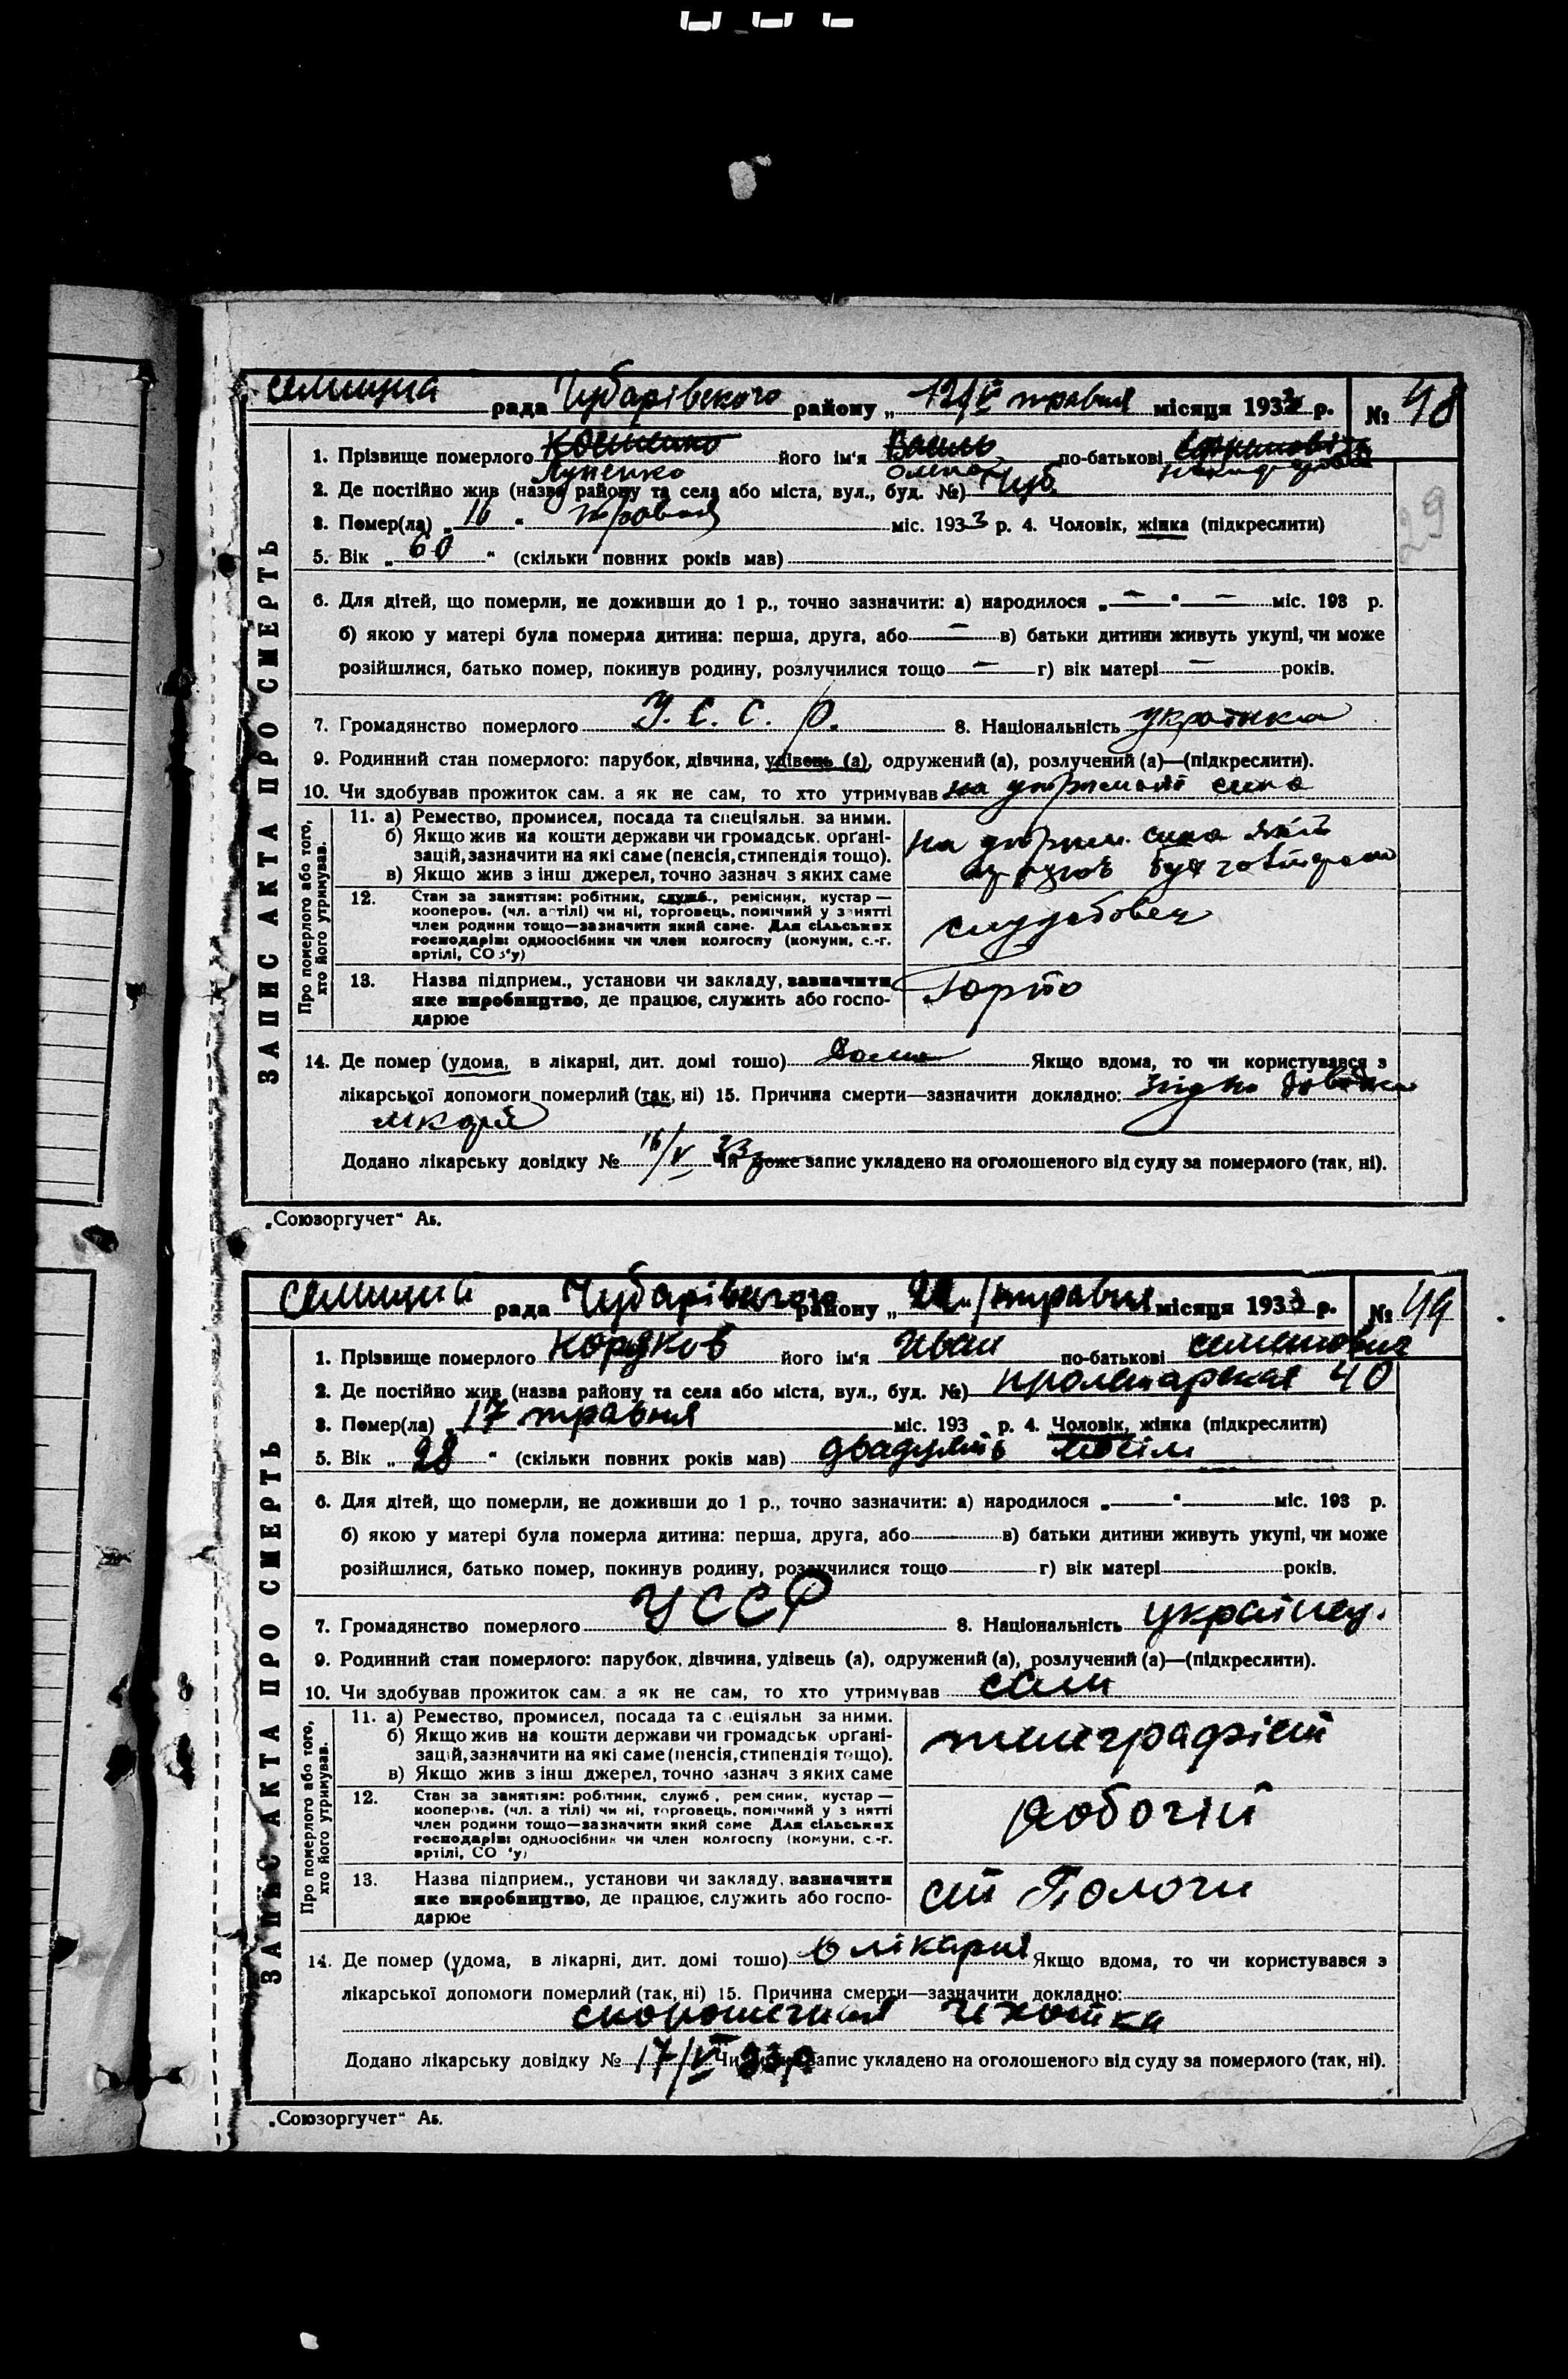 селищна рада Чубарівского району „ травня місяця 1933 р. № 48
ЗАПИС АКТА ПРО СМЕРТЬ
1. Прізвище померлого його ім'я Василь по-батькові
Луненко Олена
2. Де постійно жив (назва району та села або міста, вул., буд. №) Чуб.
29
3. Помер(ла) „ 16 " травня міс. 1933 р. 4. Чоловік, жінка (підкреслити)
5. Вік „ 60 " (скільки повних років мав)
6. Для дітей, що померли, не доживши до 1 р., точно зазначити: а) народилося „ — " — міс. 193 р.
б) якою у матері була померла дитина: перша, друга, або — в) батьки дитини живуть укупі, чи може
розійшлися, батько помер, покинув родину, розлучилися тощо — г) вік матері — років.
7. Громадянство померлого У. С. С. Р. 8. Національність українка
9. Родинний стан померлого: парубок, дівчина, удівець (а), одружений (а), розлучений (а)—(підкреслити).
10. Чи здобував прожиток сам. а як не сам, то хто утримував на утриманні сина
Про померлого або того, хто його утримував.
11. а) Ремество, промисел, посада та спеціяльн. за ними.
б) Якщо жив на кошти держави чи громадськ. органі-
зацій, зазначити на які саме (пенсія, стипендія тощо).
в) Якщо жив з інш джерел, точно зазнач з яких саме
на утриман. сина який
12. Стан за заняттям: робітник, служб., ремісник, кустар —
кооперов. (чл. артілі) чи ні, торговець, помічний у занятті
член родини тощо—зазначити який саме. Для сільських
господарів: одноосібник чи член колгоспу (комуни, с.-г.
артілі, СОЗ'у)
службовец
13. Назва підприєм., установи чи закладу, зазначити
яке виробництво, де працює, служить або госпо-
дарює
14. Де помер (удома, в лікарні, дит. домі тощо) дома Якщо вдома, то чи користувався з
лікарської допомоги померлий (так, ні) 15. Причина смерти—зазначити докладно: згідно довідки
лікаря
Додано лікарську довідку № 16/V 33 Чи може запис укладено на оголошеного від суду за померлого (так, ні).
„Союзоргучет" Аь.
селищній рада Чубарівского району „ 22 " травня місяця 1933 р. № 49
ЗАПИС АКТА ПРО СМЕРТЬ
1. Прізвище померлого його ім'я Иван по-батькові семенович
2. Де постійно жив (назва району та села або міста, вул., буд. №) пролетарская 40
3. Помер(ла) „ 17 травня міс. 193 р. 4. Чоловік, жінка (підкреслити)
5. Вік „ 28 " (скільки повних років мав) двадцять
6. Для дітей, що померли, не доживши до 1 р., точно зазначити: а) народилося „ — " — міс. 193 р.
б) якою у матері була померла дитина: перша, друга, або — в) батьки дитини живуть укупі, чи може
розійшлися, батько помер, покинув родину, розлучилися тощо — г) вік матері — років.
7. Громадянство померлого УССР 8. Національність українец.
9. Родинний стан померлого: парубок, дівчина, удівець (а), одружений (а), розлучений (а)—(підкреслити).
10. Чи здобував прожиток сам. а як не сам, то хто утримував сам
Про померлого або того, хто його утримував.
11. а) Ремество, промисел, посада та спеціяльн за ними.
б) Якщо жив на кошти держави чи громадськ органі-
зацій, зазначити на які саме (пенсія, стипендія тощо).
в) Якщо жив з інш джерел, точно зазнач з яких саме
телеграфіст
12. Стан за заняттям: робітник, служб., ремісник, кустар —
кооперов. (чл. артілі) чи ні, торговець, помічний у занятті
член родини тощо—зазначити який саме Для сільських
господарів: одноосібник чи член колгоспу (комуни, с.-г.
артілі, СОЗ'у)
робочій
13. Назва підприєм., установи чи закладу, зазначити
яке виробництво, де працює, служить або госпо-
дарює
ст Пологи
14. Де помер (удома, в лікарні, дит. домі тощо) в лікарні Якщо вдома, то чи користувався з
лікарської допомоги померлий (так, ні) 15. Причина смерти—зазначити докладно:
скоротечная чехотка
Додано лікарську довідку № 17/V 33 р Чи запис укладено на оголошеного від суду за померлого (так, ні).
„Союзоргучет" Аь.